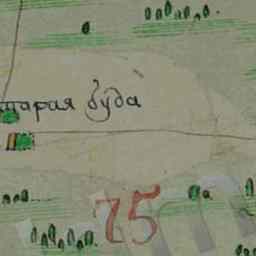 старая буда
75